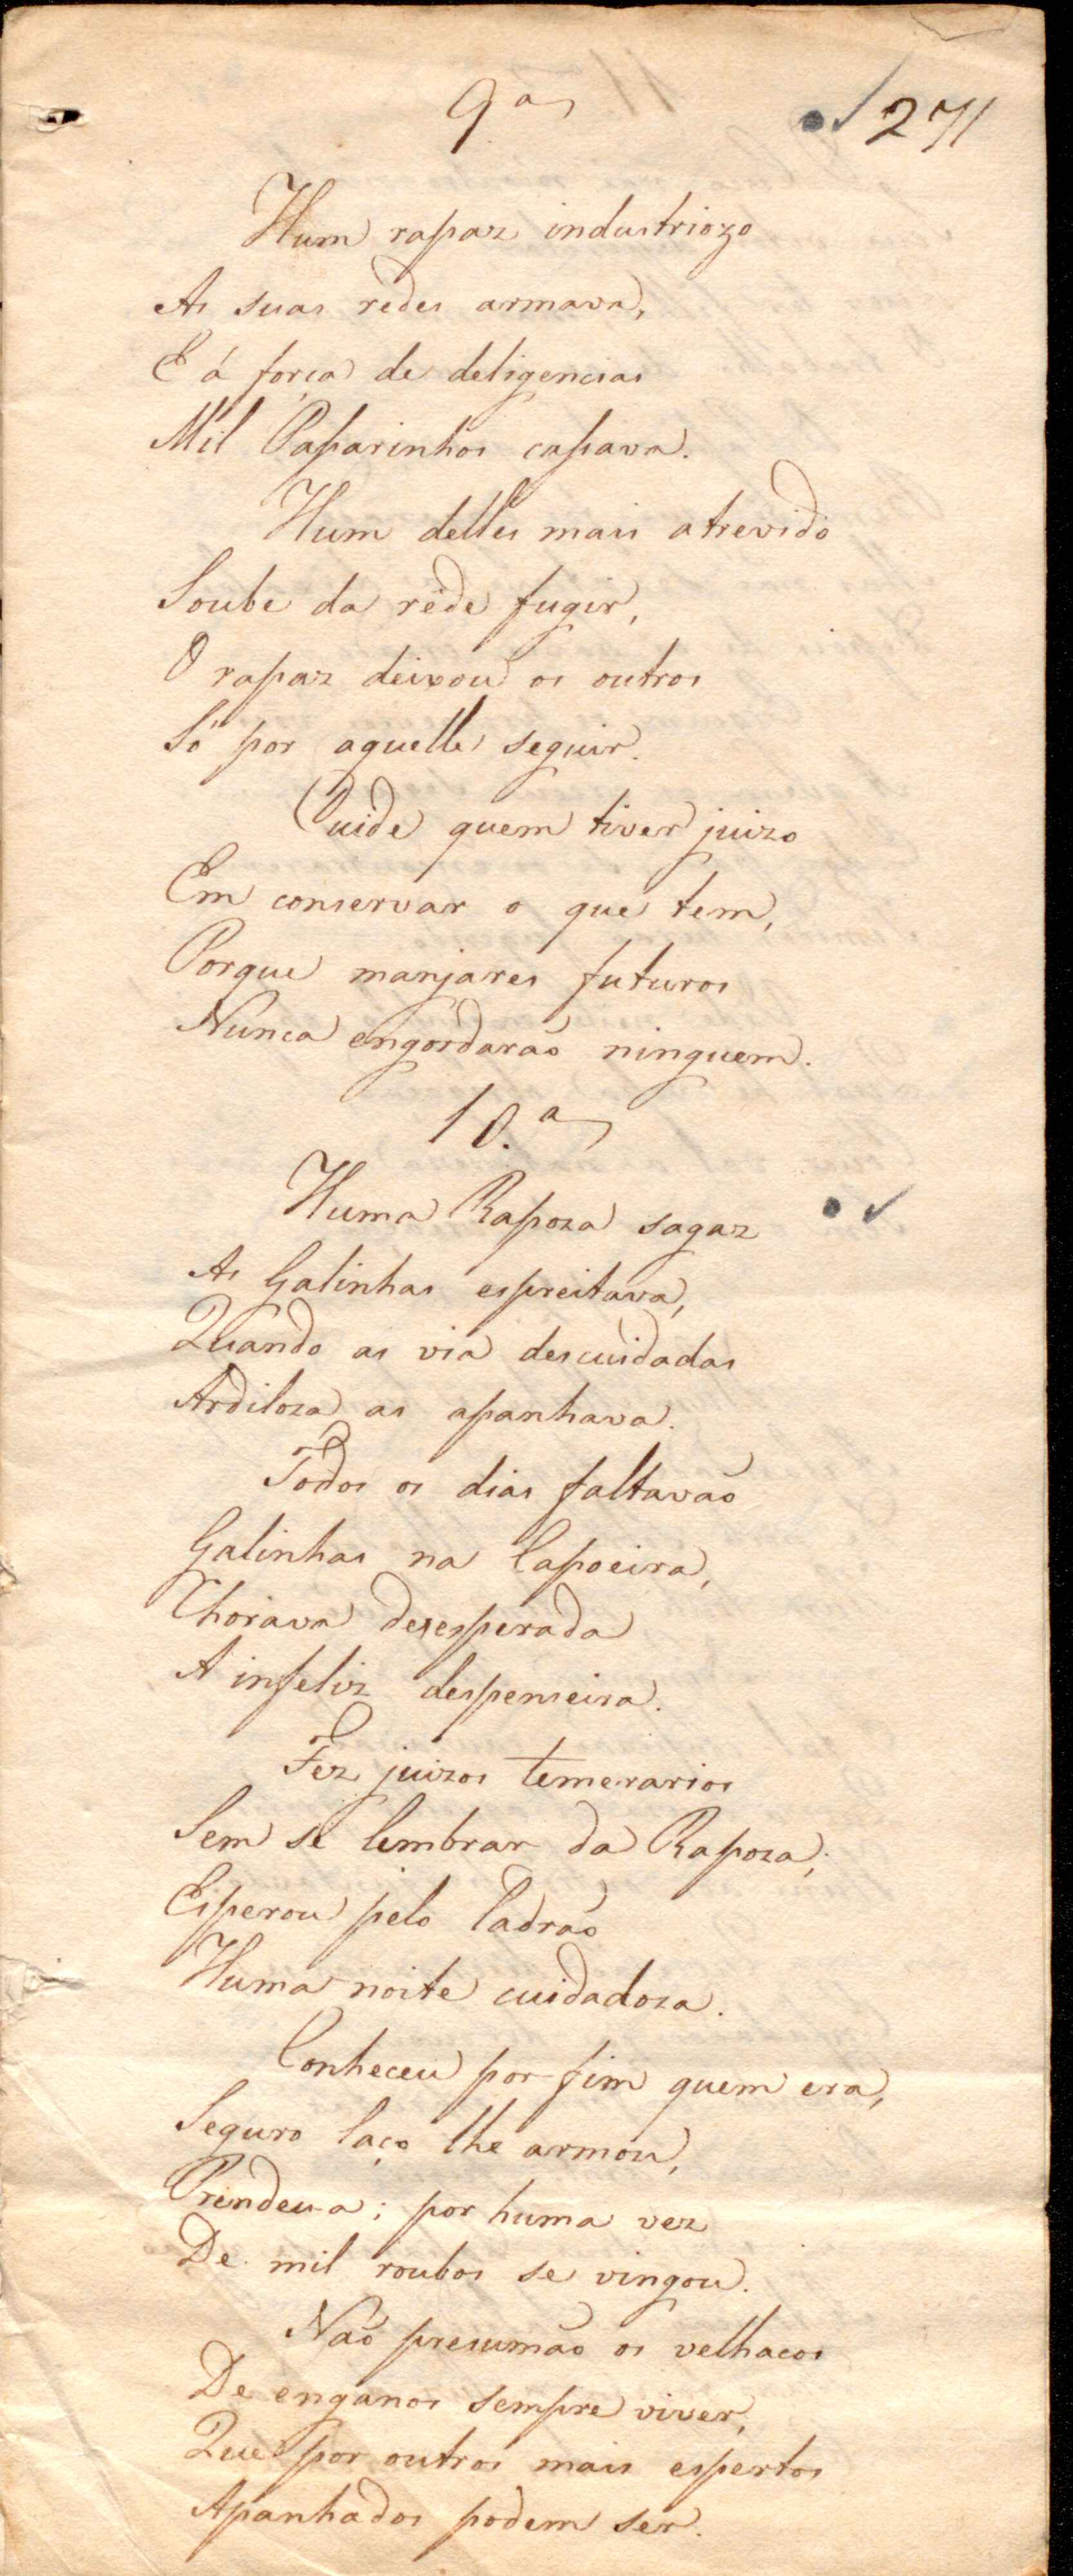 9ª
271
Hum rapaz industriozo
As suas redes armava,
E á força de deligencias
Mil Passarinhos cassava.
Hum delles mais atrevido
Soube da rêde fugir,
O rapaz deixou os outros
Só por aquelle seguir.
Cuide quem tiver juizo
Em conservar o que tem,
Porque manjares futuros
Nunca engordarão ninguem.
10.ª
Huma Rapoza sagaz
As Galinhas espreitava,
Quando as via descuidadas
Ardiloza as apanhava.
Todos os dias faltavão
Galinhas na Capoeira,
Chorava desesperada
A infeliz despenseira.
Fez juizos temerarios
Sem se lembrar da Rapoza;
Esperou pelo Ladrão
Huma noite cuidadoza.
Conheceu por fim quem era,
Seguro laço lhe armou,
Prendeu-a; por huma vez
De mil roubos se vingou.
Não presumão os velhacos
De enganos sempre viver,
Que por outros mais espertos
Apanhados podem ser.